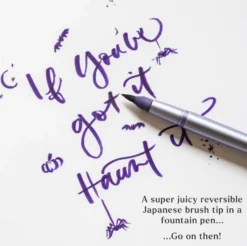 If You've
got it
Haunt it
A super juicy reversible
Japanese brush tip in a
fountain pen...
...Go on then!